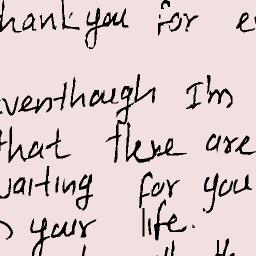 thank you for
eventhough I'm
that there are
waiting for you
your life.